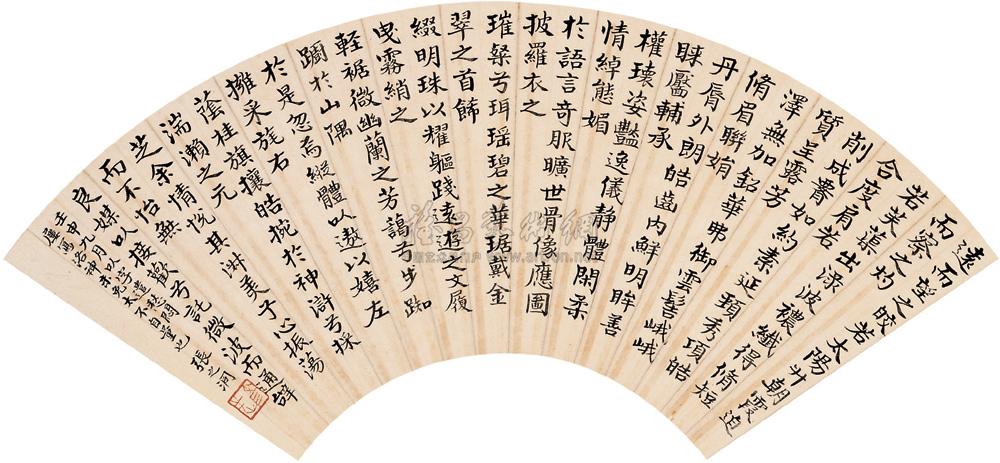 遠而望之皎若太陽升朝霞迫
而察之灼
若芙蕖出淥波襛纖得脩短
合度肩若
削成𦝫如約素延頸秀項皓
質呈露芳
澤無加鉛華弗御雲髻峨峨
脩眉聯娟
丹脣外朗皓齒內鮮明眸善
睞靨輔承
權瓌姿豔逸儀静體閑柔
情綽態媚
於語言奇服曠世骨像應圖
披羅衣之
璀粲兮珥瑶碧之華琚戴金
翠之首飾
綴明珠以耀軀踐遠遊之文履
曳霧綃之
輕裾微幽蘭之芳藹兮步踟
躕於山隅
於是忽焉縱體以遨以嬉左
擁采旄右
蔭桂旗攘皓捥於神滸兮採
湍瀨之元
芝余情悦其淑美兮心振蕩
而不怡無
良媒以接歡兮託微波而通辭
壬申九月以字
屢寫洛神未免太不自量也 張之洞